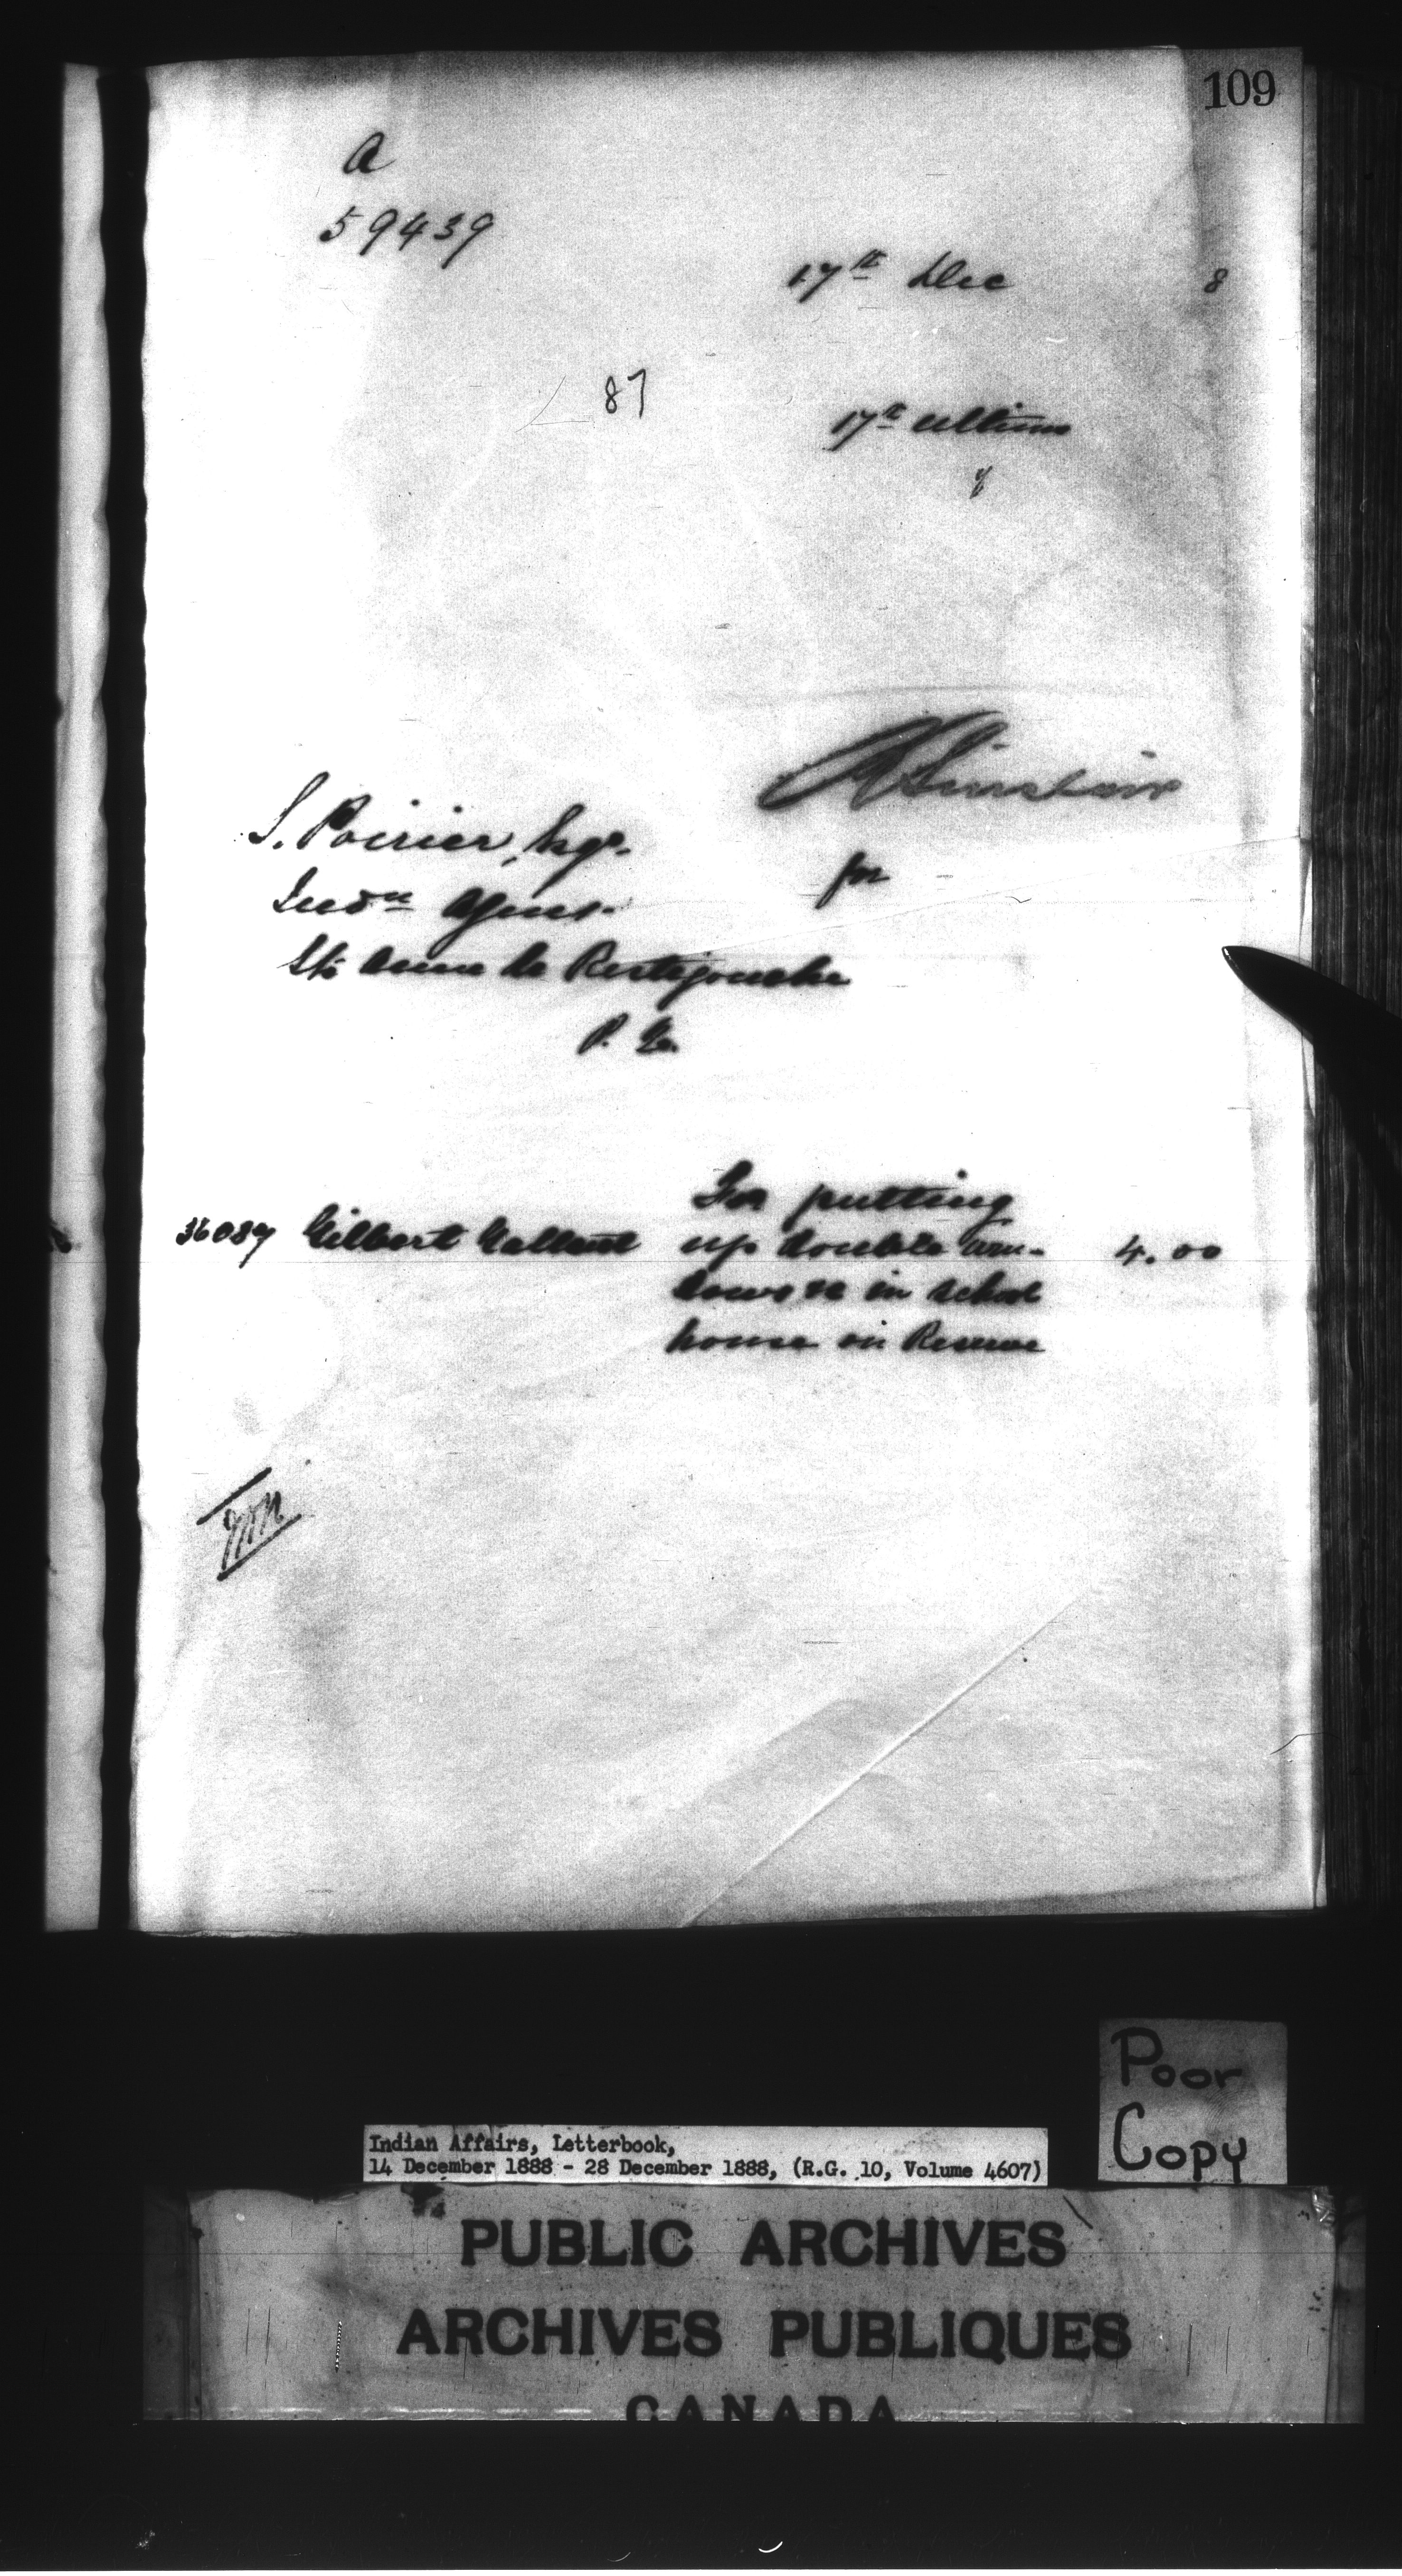 109
A
59439
17th Dec 8
87
17th ultimo
y
R Sinclair
S. Poirier, Esqr.
for
Indn Agent.
Ste Anne de Restigouche
P. Q.
For putting
36087 Gilbert Gallant up double win- 4.00
dows &c in school
house on Reserve
Poor
Copy
Indian Affairs, Letterbook,
14 December 1888 - 28 December 1888, (R.G. 10, Volume 4607)
PUBLIC ARCHIVES
ARCHIVES PUBLIQUES
CANADA